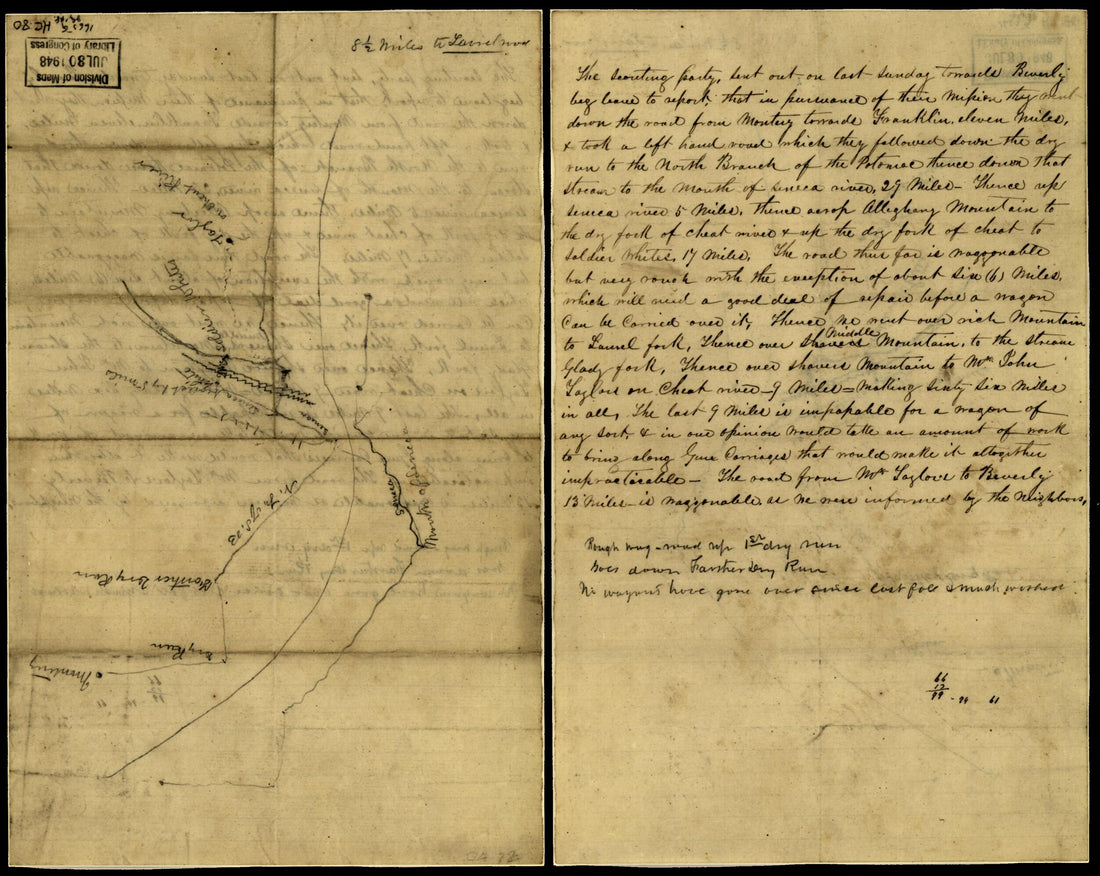 8½ Miles to Laurel
Division of Maps
JUL 30 1948
Library of Congress
HC 80
Taylor
Soldier Whites
Seneca
Mouth of Seneca
N. Fork
Dry Run
Monterey
66
The scouting party, sent out on last sunday towards Beverly
beg leave to report, that in pursuance of their mission they went
down the road from Montery towards Franklin, eleven Miles,
& took a left hand road which they followed down the dry
run to the North Branch of the Potomac thence down that
stream to the Mouth of seneca river, 29 Miles – Thence up
seneca river 5 Miles, thence acrosp Alleghany Mountain to
the dry fork of cheat river & up the dry fork of cheat to
soldier Whites, 17 Miles, The road thus far is waggonable
but very rough with the exception of about six (6) Miles,
which will need a good deal of repair before a wagon
Can be Carried over it, Thence we went over rich Mountain
to Laurel fork, Thence over shavers Middle Mountain, to the stream
Glady fork, Thence over shavers Mountain to Mr. John
Taylors on Cheat river – 9 Miles = Making sixty six Miles
in all, The last 9 Miles is impassable for a wagon of
any sort, & in our opinion would take an amount of work
to bring along Gun Carriages that would make it altogether
impracticable – The road from Mr. Taylors to Beverly
13 Miles is waggonable as we were informed by the Neighbors,
Rough wag – road up 1st dry run
Goes down Farther Dry Run
No wagons have gone over since last fall & much washed
66
13
79